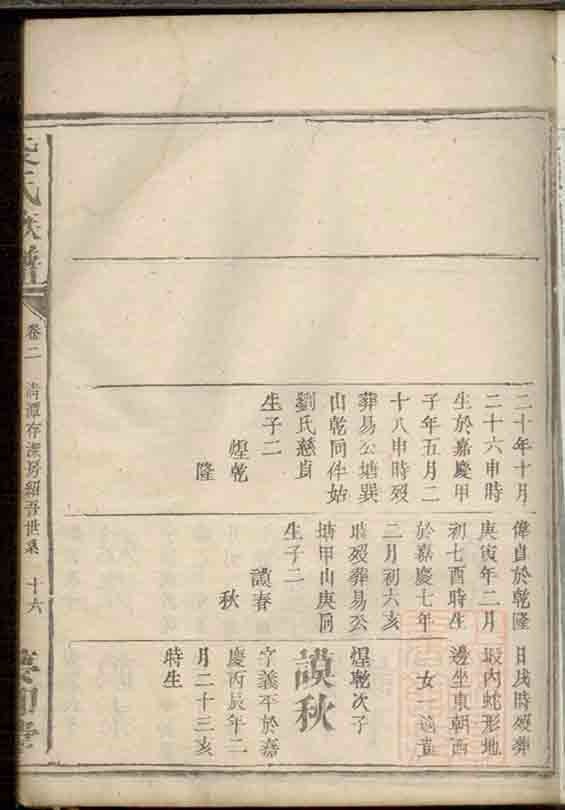 二十年十月
二十六申時
生於嘉慶甲
子年五月二
十八申時歿
葬易公塘巽
山乾同伴姑
劉氏慈貞
生子二
煋乾
隆
偉貞於乾隆
庚寅年二月
初七酉時生
於嘉慶七年
二月初六亥
時歿葬易公
塘甲山庚同
生子二
謨春
秋
日戌時歿葬
塅內蛇形地
邊坐東朝西
女一適
煋乾次子
謨秋
字義平於嘉
慶丙辰年二
月二十三亥
時生
氏族譜
卷二
清潭存潔房紹吾世系
十六